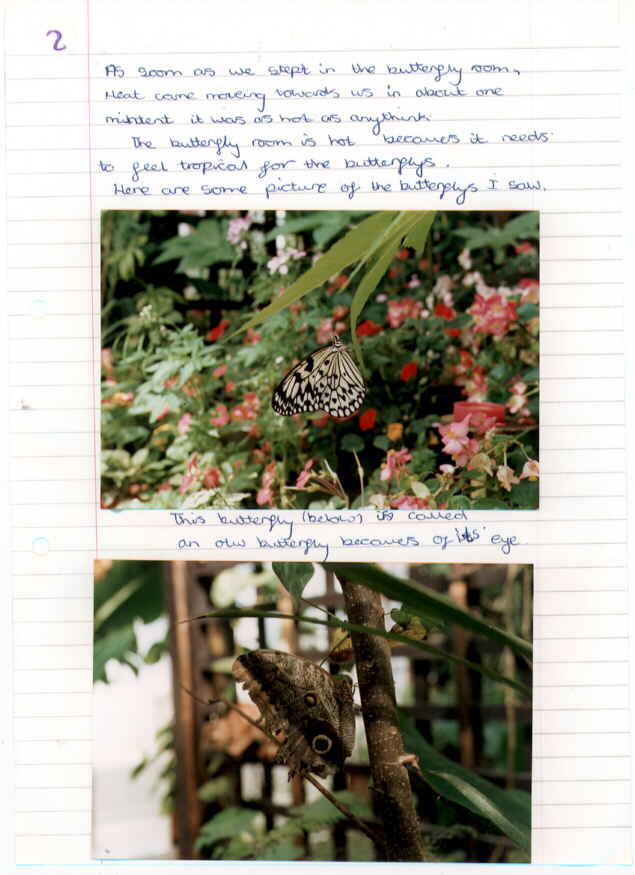 2
As soom as we stept in the butterfly room,
Heat came moveing towards us in about one
mintent it was as hot as anythink.
The butterfly room is hot becaues it needs
to feel tropical for the butterflys.
Here are some picture of the butterflys I saw.
This butterfly (below) is called
an owl butterfly becauers of its' eye